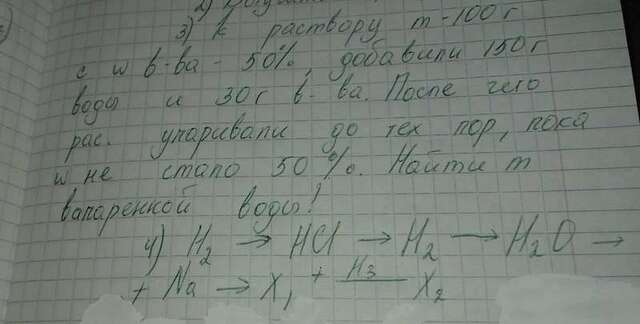 3) к раствору m - 100 г
с w в-ва - 50%, добавили 150 г
воды и 30 г в-ва. После чего
рас. упаривали до тех пор, пока
w не стало 50%. Найти m
вапаренной воды!
4) H₂ → HCl → H₂ → H₂O →
+ Na → X₁ + H₃ X₂